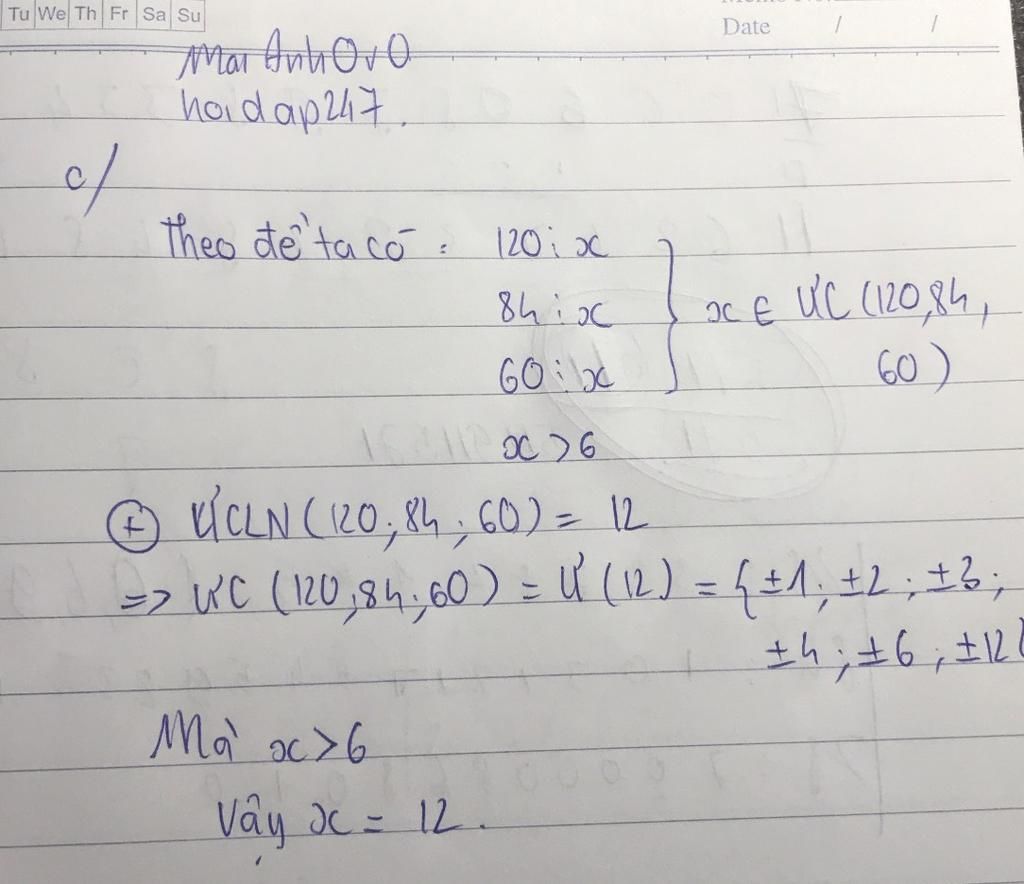 Tu We Th Fr Sa Su
Date / /
Mai Anh OvO
hoidap247.
c/
Theo đề ta có : 120 ⋮ x
84 ⋮ x } x ∈ ƯC (120,84,
60 ⋮ x 60)
x > 6
⊕ ƯCLN (120; 84; 60) = 12
=> ƯC (120; 84; 60) = Ư (12) = {±1; ±2; ±3;
±4; ±6; ±12}
Mà x > 6
Vậy x = 12.